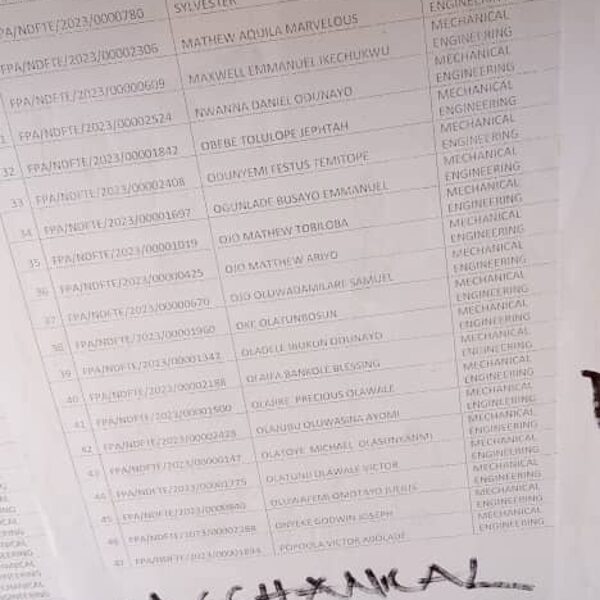 PA/NDFTE/2023/0000780 SYLVESTER ENGINEERING
FPA/NDFTE/2023/00002306 MATHEW AQUILA MARVELOUS MECHANICAL
ENGINEERING
FPA/NDFTE/2023/00000609 MAXWELL EMMANUEL IKECHUKWU MECHANICAL
ENGINEERING
1 FPA/NDFTE/2023/00002524 NWANNA DANIEL ODUNAYO MECHANICAL
ENGINEERING
32 FPA/NDFTE/2023/00001842 OBEBE TOLULOPE JEPHTAH MECHANICAL
ENGINEERING
33 FPA/NDFTE/2023/00002408 ODUNYEMI FESTUS TEMITOPE MECHANICAL
ENGINEERING
34 FPA/NDFTE/2023/00001697 OGUNLADE BUSAYO EMMANUEL MECHANICAL
ENGINEERING
35 FPA/NDFTE/2023/00001019 OJO MATHEW TOBILOBA MECHANICAL
ENGINEERING
36 FPA/NDFTE/2023/00000425 OJO MATTHEW ARIYO MECHANICAL
ENGINEERING
37 FPA/NDFTE/2023/00000670 OJO OLUWADAMILARE SAMUEL MECHANICAL
ENGINEERING
38 FPA/NDFTE/2023/00001960 OKE OLATUNBOSUN MECHANICAL
ENGINEERING
39 FPA/NDFTE/2023/00001342 OLADELE IBUKUN ODUNAYO MECHANICAL
ENGINEERING
40 FPA/NDFTE/2023/00002188 OLAIFA BANKOLE BLESSING MECHANICAL
ENGINEERING
41 FPA/NDFTE/2023/00001500 OLAJIRE PRECIOUS OLAWALE MECHANICAL
ENGINEERING
42 FPA/NDFTE/2023/00002428 OLANUBI OLUWASINA AYOMI MECHANICAL
ENGINEERING
43 FPA/NDFTE/2023/00000147 OLATOYE MICHAEL OLASUNKANMI MECHANICAL
ENGINEERING
44 FPA/NDFTE/2023/00001775 OLATUNJI OLAWALE VICTOR MECHANICAL
ENGINEERING
45 FPA/NDFTE/2023/00000840 OLUWAFEMI OMOTAYO MECHANICAL
ENGINEERING
46 FPA/NDFTE/2023/00002288 ONYEKE GODWIN JOSEPH MECHANICAL
ENGINEERING
47 FPA/NDFTE/2023/00001894 POPOOLA VICTOR MECHANICAL
ENGINEERING